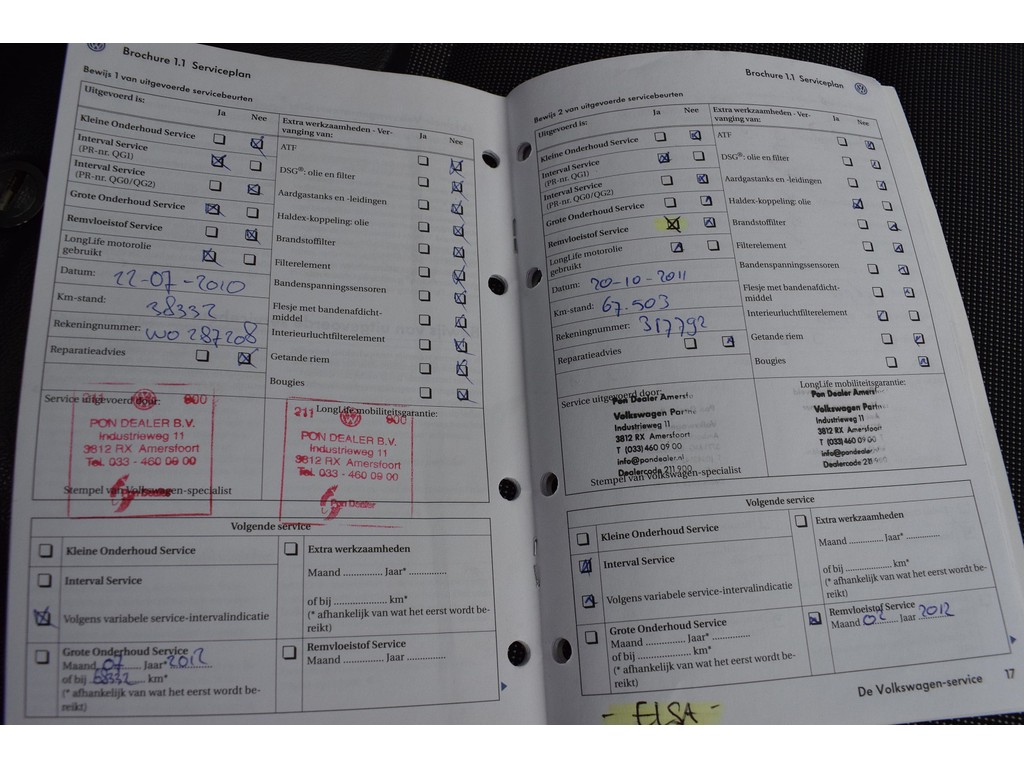 Brochure 1.1 Serviceplan
Bewijs 1 van uitgevoerde servicebeurten
Uitgevoerd is:
Ja
Nee
Kleine Onderhoud Service
Interval Service
(PR-nr. QG1)
Interval Service
(PR-nr. QG0/QG2)
Grote Onderhoud Service
Remvloeistof Service
LongLife motorolie
gebruikt
Datum: 22-07-2010
Km-stand: 38332
Rekeningnummer: WO 287208
Reparatieadvies
Extra werkzaamheden - Ver-
vanging van:
Ja
Nee
ATF
DSG®: olie en filter
Aardgastanks en -leidingen
Haldex-koppeling: olie
Brandstoffilter
Filterelement
Bandenspanningssensoren
Flesje met bandenafdicht-
middel
Interieurluchtfilterelement
Getande riem
Bougies
Service uitgevoerd door:
211 900
PON DEALER B.V.
Industrieweg 11
3812 RX Amersfoort
Tel. 033 - 460 09 00
Pon Dealer
Stempel van Volkswagen-specialist
LongLife mobiliteitsgarantie:
211 900
PON DEALER B.V.
Industrieweg 11
3812 RX Amersfoort
Tel. 033 - 460 09 00
Pon Dealer
Volgende service
Kleine Onderhoud Service
Interval Service
Volgens variabele service-intervalindicatie
Grote Onderhoud Service
Maand 07 Jaar* 2012
of bij 58332 km*
(* afhankelijk van wat het eerst wordt be-
reikt)
Extra werkzaamheden
Maand .............. Jaar* .............
of bij .................... km*
(* afhankelijk van wat het eerst wordt be-
reikt)
Remvloeistof Service
Maand .............. Jaar .............
Brochure 1.1 Serviceplan
Bewijs 2 van uitgevoerde servicebeurten
Uitgevoerd is:
Ja
Nee
Kleine Onderhoud Service
Interval Service
(PR-nr. QG1)
Interval Service
(PR-nr. QG0/QG2)
Grote Onderhoud Service
Remvloeistof Service
LongLife motorolie
gebruikt
Datum: 20-10-2011
Km-stand: 67.503
Rekeningnummer: 317792
Reparatieadvies
Extra werkzaamheden - Ver-
vanging van:
Ja
Nee
ATF
DSG®: olie en filter
Aardgastanks en -leidingen
Haldex-koppeling: olie
Brandstoffilter
Filterelement
Bandenspanningssensoren
Flesje met bandenafdicht-
middel
Interieurluchtfilterelement
Getande riem
Bougies
Service uitgevoerd door:
Pon Dealer
Volkswagen
Industrieweg 11
3812 RX Amersfoort
T (033) 460 09 00
info@pondealer.nl
Dealercode 211 900
Stempel van Volkswagen-specialist
LongLife mobiliteitsgarantie:
Pon Dealer
Volkswagen
Industrieweg 11
3812 RX Amersfoort
T (033) 460 09 00
info@pondealer
Dealercode 211 900
Volgende service
Kleine Onderhoud Service
Interval Service
Volgens variabele service-intervalindicatie
Grote Onderhoud Service
Maand .............. Jaar* .............
of bij .................... km*
(* afhankelijk van wat het eerst wordt be-
reikt)
Extra werkzaamheden
Maand .............. Jaar* .............
of bij .................... km*
(* afhankelijk van wat het eerst wordt be-
reikt)
Remvloeistof Service
Maand 02 Jaar 2012
De Volkswagen-service 17
- ELSA -